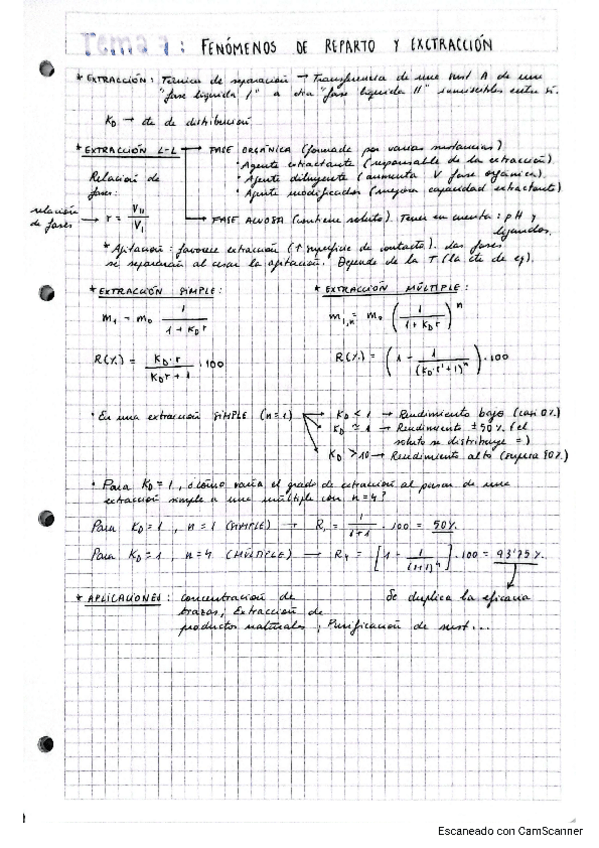 Tema 1: FENÓMENOS DE REPARTO Y EXCTRACCIÓN
* EXTRACCIÓN: Técnica de separación → Transferencia de una sust A de una
"fase líquida I" a otra "fase líquida II" inmiscibles entre sí.
KD → cte de distribución
* EXTRACCIÓN L-L → FASE ORGÁNICA (formada por varias sustancias)
· Agente extractante (responsable de la extracción)
· Agente diluyente (aumenta V fase orgánica).
· Agente modificador (mejora capacidad extractante)
Relación de
fases:
relación
de fases → r = VII / VI
→ FASE ACUOSA (contiene soluto). Tener en cuenta: pH y
ligandos.
* Agitación: favorece extracción (↑ superficie de contacto). Las fases
se separarán al cesar la agitación. Depende de la T (la cte de eq).
* EXTRACCIÓN SIMPLE:
m1 = m0 1 / (1 + KD r)
R(%) = KD·r / (KD r + 1) · 100
* EXTRACCIÓN MÚLTIPLE:
m1,n = m0 (1 / (1 + KD r))^n
R(%) = (1 - 1 / (KD·r' + 1)^n) · 100
· En una extracción SIMPLE (n=1) → KD < 1 → Rendimiento bajo (casi 0%)
KD ≃ 1 → Rendimiento ± 50% (el
soluto se distribuye =)
KD > 10 → Rendimiento alto (supera 90%)
· Para KD = 1, ¿cómo varía el grado de extracción al pasar de una
extracción simple a una múltiple con n=4?
Para KD = 1, n = 1 (SIMPLE) → R1 = 1 / (1+1) · 100 = 50%
Para KD = 1, n = 4 (MÚLTIPLE) → R4 = [1 - 1 / (1+1)^4] · 100 = 93'75%
Se duplica la eficacia
* APLICACIONES: Concentración de
trazas, Extracción de
productos naturales, Purificación de sust...
Escaneado con CamScanner